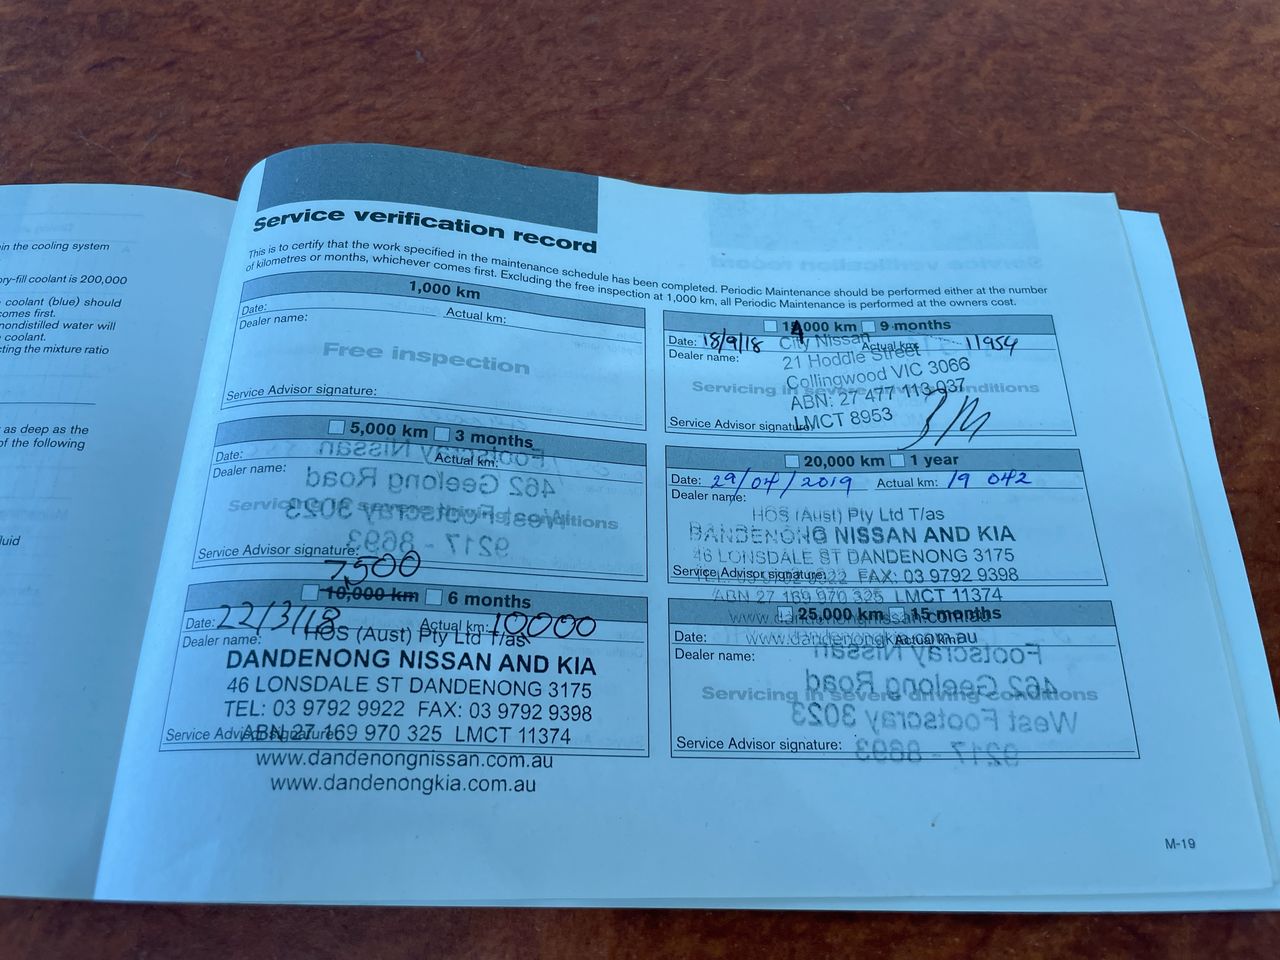 in the cooling system
ory-fill coolant is 200,000
coolant (blue) should
comes first.
nondistilled water will
coolant.
cting the mixture ratio
as deep as the
of the following
luid
Service verification record
This is to certify that the work specified in the maintenance schedule has been completed. Periodic Maintenance should be performed either at the number
of kilometres or months, whichever comes first. Excluding the free inspection at 1,000 km, all Periodic Maintenance is performed at the owners cost.
1,000 km
Date: Actual km:
Dealer name:
Free inspection
Service Advisor signature:
5,000 km 3 months
Date: Actual km:
Dealer name:
Servicing in severe driving conditions
Service Advisor signature:
7,500
10,000 km 6 months
Date: 22/3/18 Actual km: 10000
Dealer name: HOS (Aust) Pty Ltd T/as
DANDENONG NISSAN AND KIA
46 LONSDALE ST DANDENONG 3175
TEL: 03 9792 9922 FAX: 03 9792 9398
Service Advisor signature: ABN 27 169 970 325 LMCT 11374
www.dandenongnissan.com.au
www.dandenongkia.com.au
000 km 9 months
Date: 18/9/18 Actual km: 11954
City Nissan
Dealer name: 21 Hoddle Street
Collingwood VIC 3066
Servicing in severe driving conditions
ABN: 27 477 113 037
Service Advisor signature: LMCT 8953
20,000 km 1 year
Date: 29/04/2019 Actual km: 19 042
Dealer name:
HOS (Aust) Pty Ltd T/as
DANDENONG NISSAN AND KIA
46 LONSDALE ST DANDENONG 3175
Service Advisor signature: TEL: 03 9792 9922 FAX: 03 9792 9398
ABN 27 169 970 325 LMCT 11374
25,000 km 15 months
www.dandenongnissan.com.au
Date: Actual km:
www.dandenongkia.com.au
Dealer name:
Footscray Nissan
462 Geelong Road
Servicing in severe driving conditions
West Footscray 3023
Service Advisor signature:
9217 - 8693
M-19